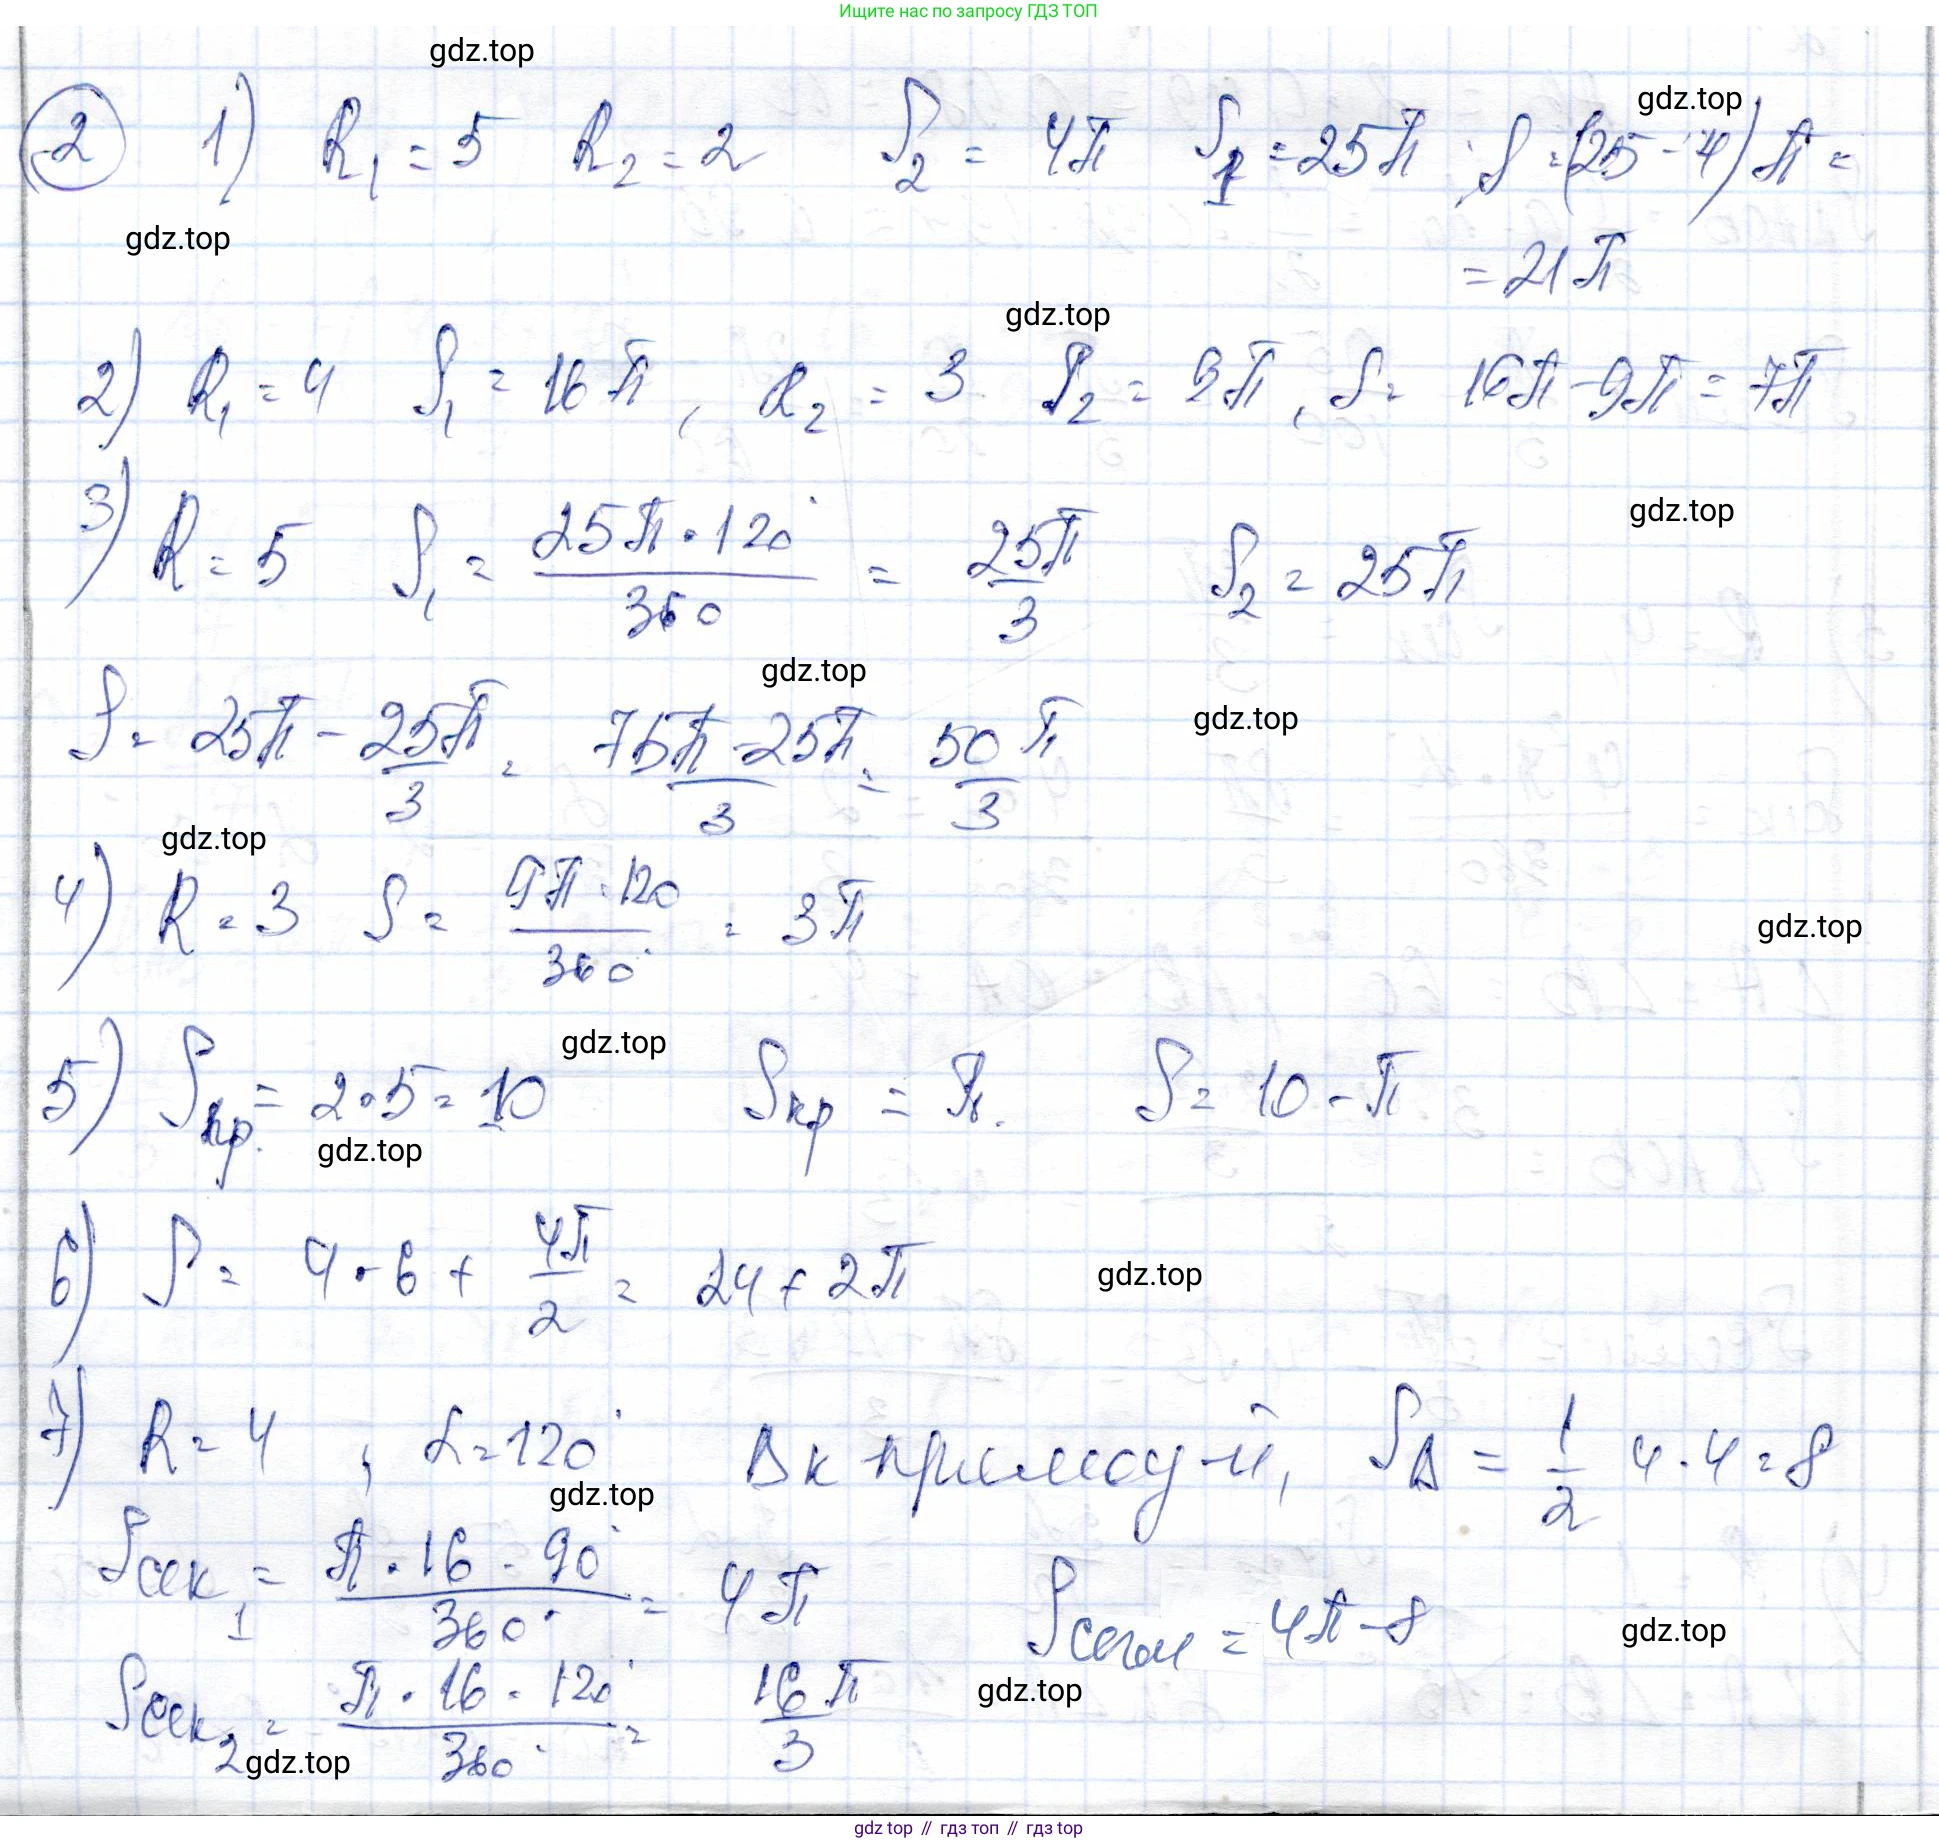 Ищите нас по запросу ГДЗ ТОП
gdz.top
② 1) R₁ = 5 R₂ = 2 S₂ = 4π S₁ = 25π, S = (25 - 4)π =
gdz.top
gdz.top
= 21π
gdz.top
2) R₁ = 4 S₁ = 16π, R₂ = 3 S₂ = 9π, S = 16π - 9π = 7π
3) R = 5 S₁ = 25π · 120° / 360 = 25π / 3 S₂ = 25π
gdz.top
gdz.top
S = 25π - 25π / 3 = 75π - 25π / 3 = 50π / 3
gdz.top
gdz.top
4) R = 3 S = 9π · 120 / 360° = 3π
gdz.top
gdz.top
5) Sпр. = 2 · 5 = 10 Sкр = π. S = 10 - π
gdz.top
6) S = 4 · 6 + 4π / 2 = 24 + 2π
gdz.top
7) R = 4, α = 120° Δ к прямоуг-й, SΔ = 1/2 4 · 4 = 8
gdz.top
Sсек₁ = π · 16 · 90° / 360° = 4π Sсегм = 4π - 8
gdz.top
gdz.top
Sсек₂ = π · 16 · 120° / 360° = 16π / 3
gdz.top
gdz top // гдз топ // гдз top